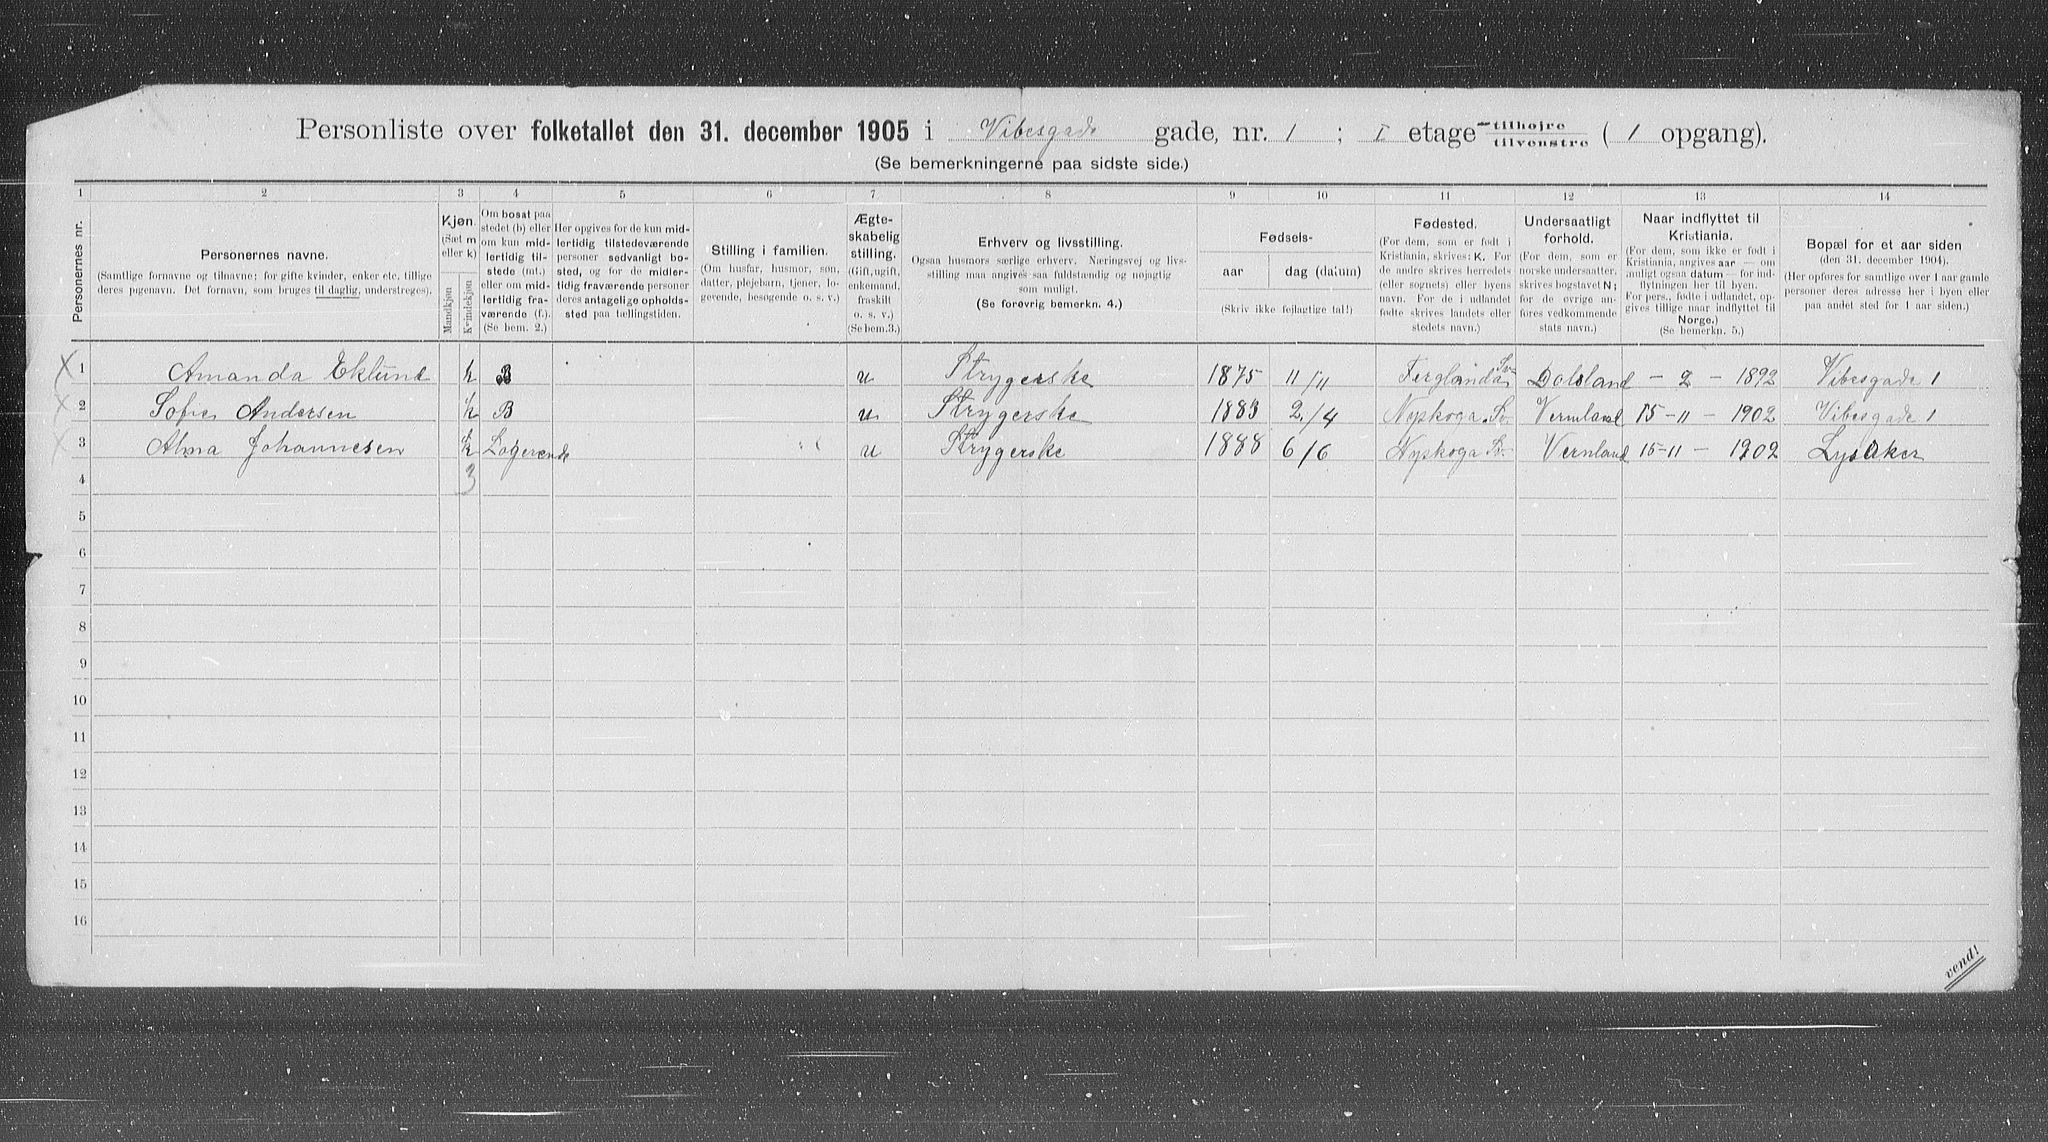 Personliste over folketallet den 31. december 1905 i Vibesgade gade, nr. 1 ; I etage tilhøjre tilvenstre ( 1 opgang).
(Se bemerkningerne paa sidste side.)
1 2 3 4 5 6 7 8 9 10 11 12 13 14
Personernes nr.
Personernes navne.
(Samtlige fornavne og tilnavne; for gifte kvinder, enker etc. tillige
deres pigenavn. Det fornavn, som bruges til daglig, understreges).
Kjøn.
(Sæt m
eller k)
Mandkjøn
Kvindekjøn
Om bosat paa
stedet (b) eller
om kun mid-
lertidig til-
stede (mt.)
eller om mid-
lertidig fra-
værende (f.).
(Se bem. 2.)
Her opgives for de kun mid-
lertidig tilstedeværende
personer sedvanligt bo-
sted, og for de midler-
tidig fraværende personer
deres antagelige opholds-
sted paa tællingstiden.
Stilling i familien.
(Om husfar, husmor, søn,
datter, plejebarn, tjener, lo-
gerende, besøgende o. s. v.)
Ægte-
skabelig
stilling.
(Gift, ugift,
enkemand,
fraskilt
o. s. v.)
(Se bem.3.)
Erhverv og livsstilling.
Ogsaa husmors særlige erhverv. Næringsvej og livs-
stilling maa angives saa fuldstændig og nøjagtig
som muligt.
(Se forøvrig bemerkn. 4.)
Fødsels-
aar
dag (datum)
(Skriv ikke fejlagtige tal!)
Fødested.
(For dem, som er født i
Kristiania, skrives: K. For
de andre skrives herredets
(eller sognets) eller byens
navn. For de i udlandet
fødte skrives landets eller
stedets navn.)
Undersaatligt
forhold.
(For dem, som er
norske undersaatter,
skrives bogstavet N;
for de øvrige an-
føres vedkommende
stats navn.)
Naar indflyttet til
Kristiania.
(For dem, som ikke er født i
Kristiania, angives aar — om
muligt ogsaa datum — for ind-
flytningen her til byen.
For pers., fødte i udlandet, op-
gives tillige naar indflyttet til
Norge.)
(Se bemerkn. 5.)
Bopæl for et aar siden
(den 31. december 1904).
(Her opføres for samtlige over 1 aar gamle
personer deres adresse her i byen eller
paa andet sted for 1 aar siden.)
X 1 Amanda Eklund k B u Strygerske 1875 11/11 Ferglanda Sv. Dalsland - 2 - 1892 Vibesgade 1
X 2 Sofie Andersen k B u Strygerske 1883 2/4 Nyskoga Sv. Vermland 15-11-1902 Vibesgade 1
X 3 Alma Johannesen k Logerende u Strygerske 1888 6/6 Nyskoga Sv. Vermland 15-11-1902 Lysaker
4 3
5
6
7
8
9
10
11
12
13
14
15
16
vend!